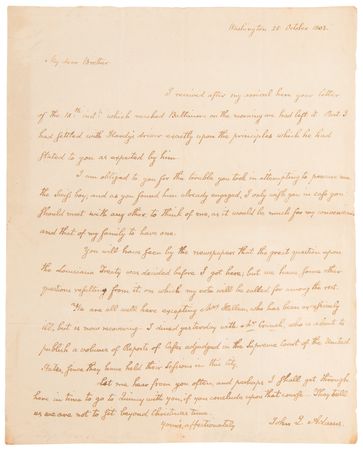 Washington 25 October 1803.
My dear Brother
I received after my arrival here your letter
of the 18th inst. which reached Baltimore on the morning we had left it. But I
had settled with Handy's driver exactly upon the principles which he had
stated to you as expected by him.
I am obliged to you for the trouble you took in attempting to procure me
the Swiss boy; and as you found him already engaged, I only wish you in case you
should meet with any other to think of me, as it would be much for my convenience
and that of my family to have one.
You will have seen by the newspapers that the great question upon
the Louisiana Treaty was decided before I got here; but we have some other
questions resulting from it, on which my vote will be called for among the rest.
We are all well here excepting Mrs Hellen, who has been
ill, but is now recovering. I dined yesterday with Mr Cranch, who is about to
publish a volume of Reports of Cases adjudged in the Supreme Court of the United
States, since they have held their sessions in this city.
Let me hear from you often, and perhaps I shall get through
here in time to go to Quincy with you, if you conclude upon that course. They tell
us we are not to sit beyond Christmas time.
Yours, affectionately
John Q. Adams.